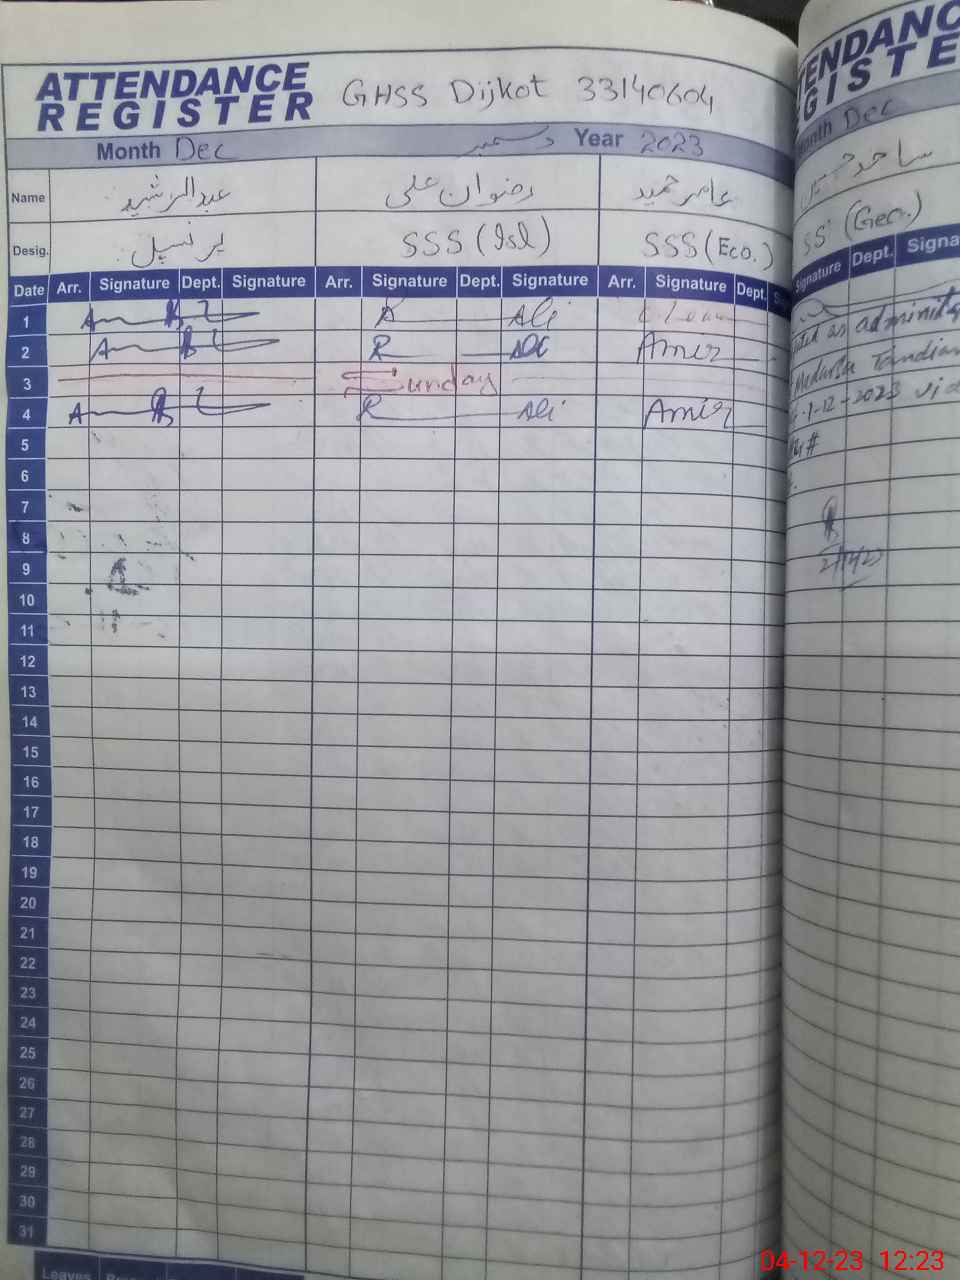 ATTENDANCE
REGISTER
GHSS Dijkot 33140604
Month Dec دسمبر Year 2023
Name عبدالرشید رضوان علی عامر حمید
Desig. پرنسپل SSS (Isl) SSS (Eco.)
Date Arr. Signature Dept. Signature Arr. Signature Dept. Signature Arr. Signature Dept.
1 Ali
2 Amir
3 Sunday
4 R Ali Amir
5
6
7
8
9
10
11
12
13
14
15
16
17
18
19
20
21
22
23
24
25
26
27
28
29
30
31
Leaves
ENDANC
GISTE
onth Dec
ساجد
SS (Geo.)
Signature Dept. Signa
as administ
1-12-2023
04-12-23 12:23